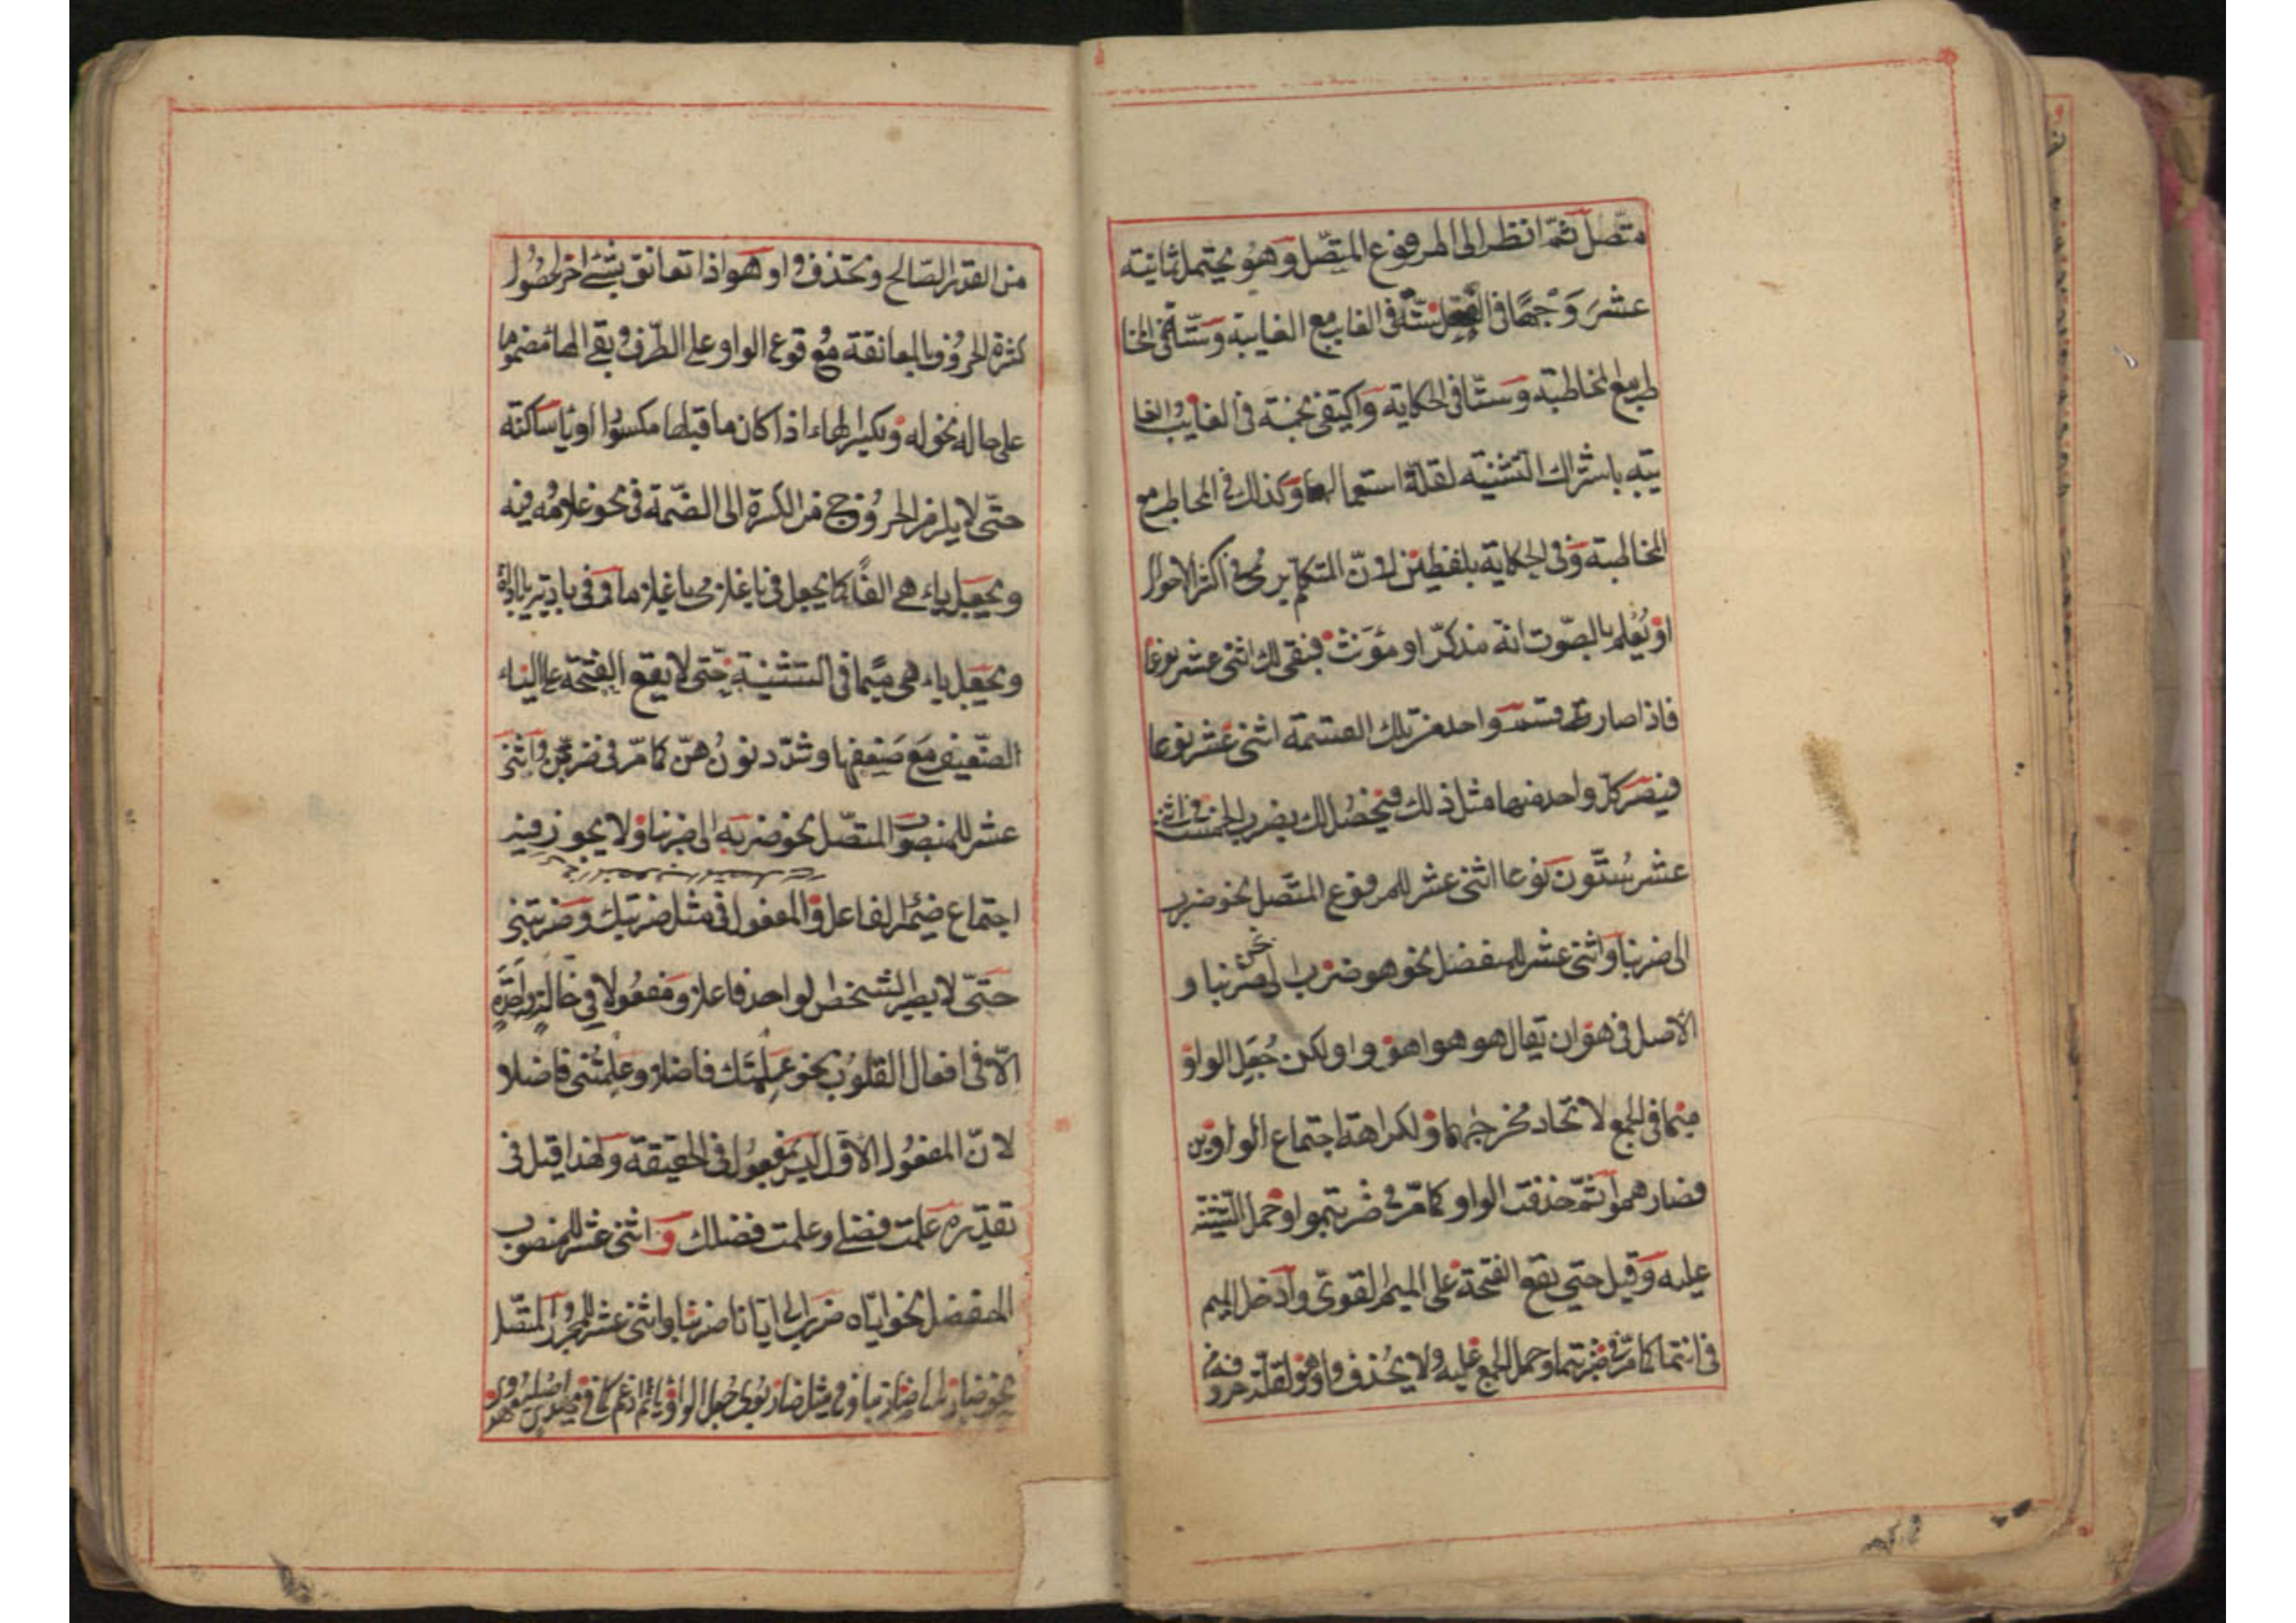 متّصل ثمّ انظر الى المرفوع المتّصل وهو يحتمل ثمانية
عشر وَجهًا فى العقل ستّة فى الغايب مع الغايبة وستّة فى المخا
طب مع المخاطبة وستّا فى الحكاية واكتفى بخمة فى الغايب الغا
يبه باشتراك التثنيه لقلّة استعمالها وكذلك فى المخاطب مع
المخاطبة وفى الحكاية بلفظين لانّ المتكلّم يرى فى اكثر الاحوال
او يُعلم بالصّوت انه مذكرّ او مؤنث فبقى لك اثنى عشر نوعا
فاذا صار قسم واحد من تلك القسمة اثنى عشر نوعا
فيصر كل واحد منها مثل ذلك فيحصُل لك بضرب الخمس فى اثنى
عشر ستّون نوعا اثنى عشر للمرفوع المتّصل نحو ضرب
الى ضربنا واثنى عشر للمنفصل نحو هو ضرب الى نحن ضربنا و
الاصل فى هو ان يقال هو هوا هو وا ولكن جُعل الواو
ميما فى الجمع لاتحاد مخرجهما ولكراهة اجتماع الواوين
فصار هموا ثمّ حذفت الواو كما مرّ فى ضربتموا وحمل التثنية
عليه وقيل حتى يقع الفتحة على الميم القوىّ وادخل الميم
فى انتما كما مرّ فى ضربتما وحمل الجمع عليه ولا يحُذف واو هو لقلّة حروفه
من القدر الصّالح وتحذف واو هو اذا تعانق بشئ اخر لحصُول
كثرة الحروف بالمعانقة مع وقوع الواو على الطّرف وبقى الهاء مضموما
على حاله نحو له وتكسر الهاء اذا كان ما قبلها مكسورا او ياء ساكنة
حتّى لا يلزم الخروج من الكسرة الى الضّمة فى نحو غلامه وفيه
ويجعل ياء هى الفًا كما يجعل فى يا غلامى يا غلاما وفى يا بادية يا باداة
ويجعل ياء هى ميًما فى التثنية حتّى لا يقع الفتحة على الياء
الضّعيف مع ضعفها وشدّد نون هنّ كما مرّ فى ضربتنّ واثنى
عشر للمنصوب المتّصل نحو ضربه الى ضربنا ولا يجوز فيه
اجتماع ضميرا لفاعل والمفعول فى مثل ضربتك وضربتنى
حتّى لا يصير الشخص لواحد فاعلا ومفعولا فى حالة واحدة
الّا فى افعال القلوب نحو علمتك فاضلا وعلمتنى فاضلا
لانّ المفعول الاوّل ليس بمفعول فى الحقيقة ولهذا قيل فى
تقديره علمت فضلى وعلمت فضلك و اثنى عشر للمنصوب
المنفصل نحو ايّاه ضرب الى ايّانا ضربنا واثنى عشر للمجرور المتّصل
نحو ضاربه الى ضاربنا وفى مثل ضاربوى جعل الواو ياء ثم ادغم كما فى